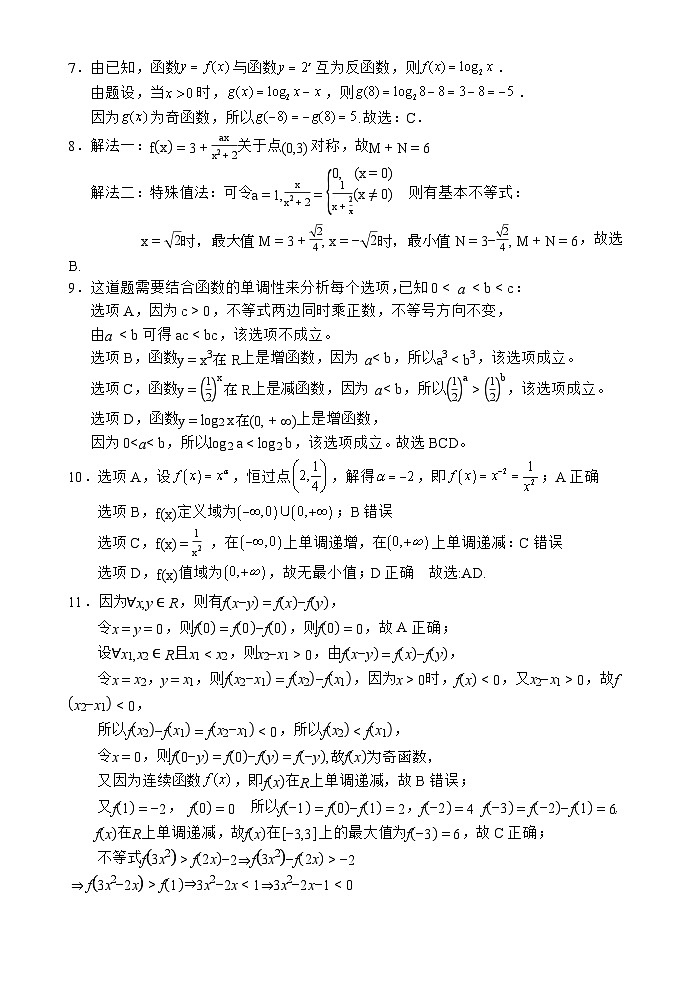 7．由已知，函数y = f(x)与函数y = 2ˣ互为反函数，则f(x) = log₂ x．
由题设，当x >0时，g(x) = log₂ x − x，则g(8) = log₂ 8 − 8 = 3 − 8 = −5．
因为g(x)为奇函数，所以g(−8) = −g(8) = 5.故选：C．
8．解法一：f(x) = 3 + ax/(x² + 2)关于点(0,3)对称，故M + N = 6
解法二：特殊值法：可令a = 1, x/(x² + 2) = {0, (x = 0); 1/(x + 2/x) (x ≠ 0) 则有基本不等式：
x = √2时，最大值 M = 3 + √2/4, x = −√2时，最小值 N = 3−√2/4, M + N = 6，故选
B.
9．这道题需要结合函数的单调性来分析每个选项,已知 0 < a < b < c：
选项 A,因为 c > 0，不等式两边同时乘正数，不等号方向不变，
由a < b 可得 ac < bc，该选项不成立。
选项 B，函数y = x³在 R上是增函数，因为 a< b，所以a³ < b³，该选项成立。
选项 C，函数y = (1/2)ˣ在 R上是减函数，因为 a< b，所以(1/2)ᵃ > (1/2)ᵇ，该选项成立。
选项 D，函数y = log2 x在(0, + ∞)上是增函数，
因为 0<a< b，所以log2 a < log2 b，该选项成立。故选 BCD。
10．选项 A，设 f(x) = xᵅ，恒过点(2, 1/4)，解得α = −2，即 f(x) = x⁻² = 1/x²；A 正确
选项 B，f(x)定义域为(−∞,0)∪(0,+∞)；B 错误
选项 C，f(x) = 1/x² ，在(−∞,0)上单调递增，在(0,+∞)上单调递减：C 错误
选项 D，f(x)值域为(0,+∞)，故无最小值；D 正确 故选:AD.
11．因为∀x,y ∈ R，则有f(x−y) = f(x)−f(y)，
令x = y = 0，则f(0) = f(0)−f(0)，则f(0) = 0，故 A 正确；
设∀x₁,x₂ ∈ R且x₁ < x₂，则x₂−x₁ > 0，由f(x−y) = f(x)−f(y)，
令x = x₂，y = x₁，则f(x₂−x₁) = f(x₂)−f(x₁)，因为x > 0时，f(x) < 0，又x₂−x₁ > 0，故f
(x₂−x₁) < 0，
所以f(x₂)−f(x₁) = f(x₂−x₁) < 0，所以f(x₂) < f(x₁)，
令x = 0，则f(0−y) = f(0)−f(y) = f(−y),故f(x)为奇函数，
又因为连续函数 f(x)，即f(x)在R上单调递减，故 B 错误；
又f(1) = −2， f(0) = 0 所以f(−1) = f(0)−f(1) = 2，f(−2) = 4 f(−3) = f(−2)−f(1) = 6.
f(x)在R上单调递减，故f(x)在[−3,3]上的最大值为f(−3) = 6，故 C 正确；
不等式f(3x²) > f(2x)−2⇒f(3x²)−f(2x) > −2
⇒ f(3x²−2x) > f(1)⇒3x²−2x < 1⇒3x²−2x−1 < 0